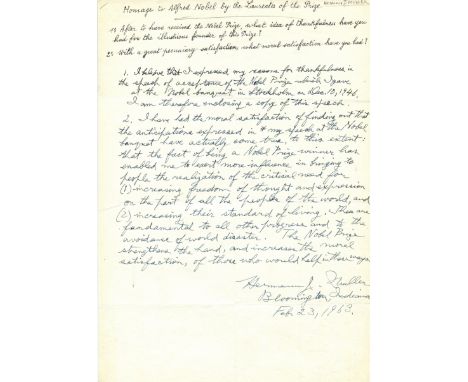 Homage to Alfred Nobel by the Laureates of the Prize
1) After to have received the Nobel Prize, what idea of thankfulness have you
had for the illustrious founder of this Prize?
2) With a great pecuniary satisfaction, what moral satisfaction have you had?
1. I believe that I expressed my reasons for thankfulness in
the speech of acceptance of the Nobel Prize which I gave
at the Nobel banquet in Stockholm on Dec. 10, 1946.
I am therefore enclosing a copy of this speech.
2. I have had the moral satisfaction of finding out that
the anticipations expressed in my speech at the Nobel
banquet have actually come true, to this extent:
that the fact of being a Nobel Prize winner has
enabled me to exert more influence in bringing to
people the realization of the critical need for
(1) increasing freedom of thought and expression
on the part of all the peoples of the world, and
(2) increasing their standard of living. These are
fundamental to all other progress and to the
avoidance of world disaster. The Nobel Prize
strengthens the hand, and increases the moral
satisfaction, of those who would help in these ways.
Hermann J. Muller
Bloomington, Indiana
Feb. 23, 1963.